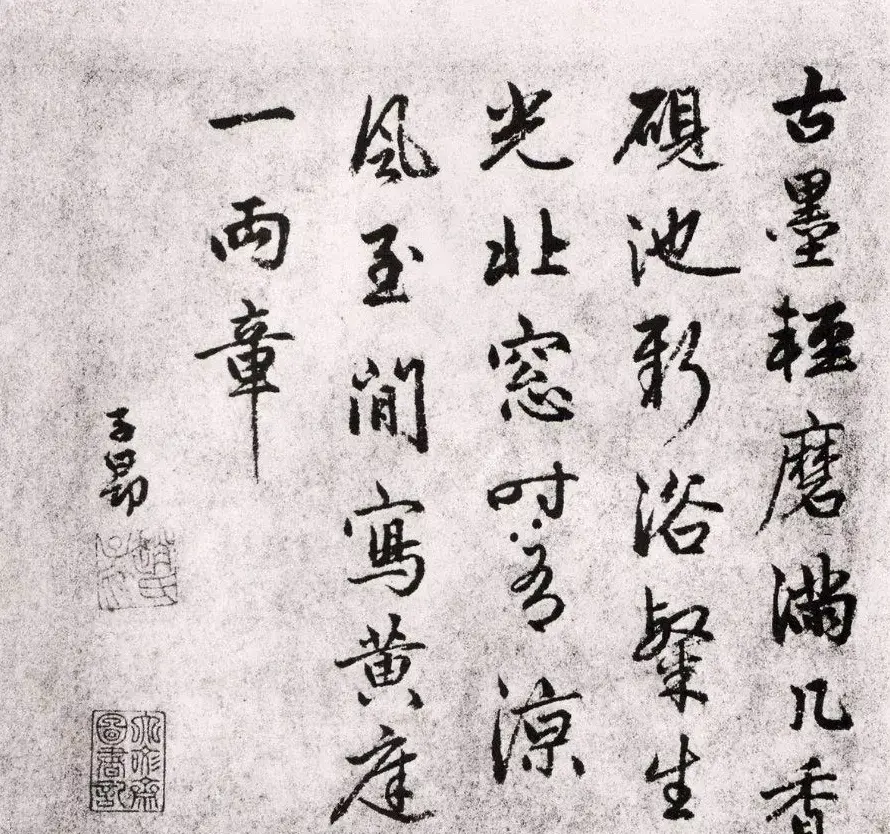 古墨輕磨滿几香
硯池新浴粲生
光北窓時有涼
風至閒寫黃庭
一兩章
子昂
趙氏子昂